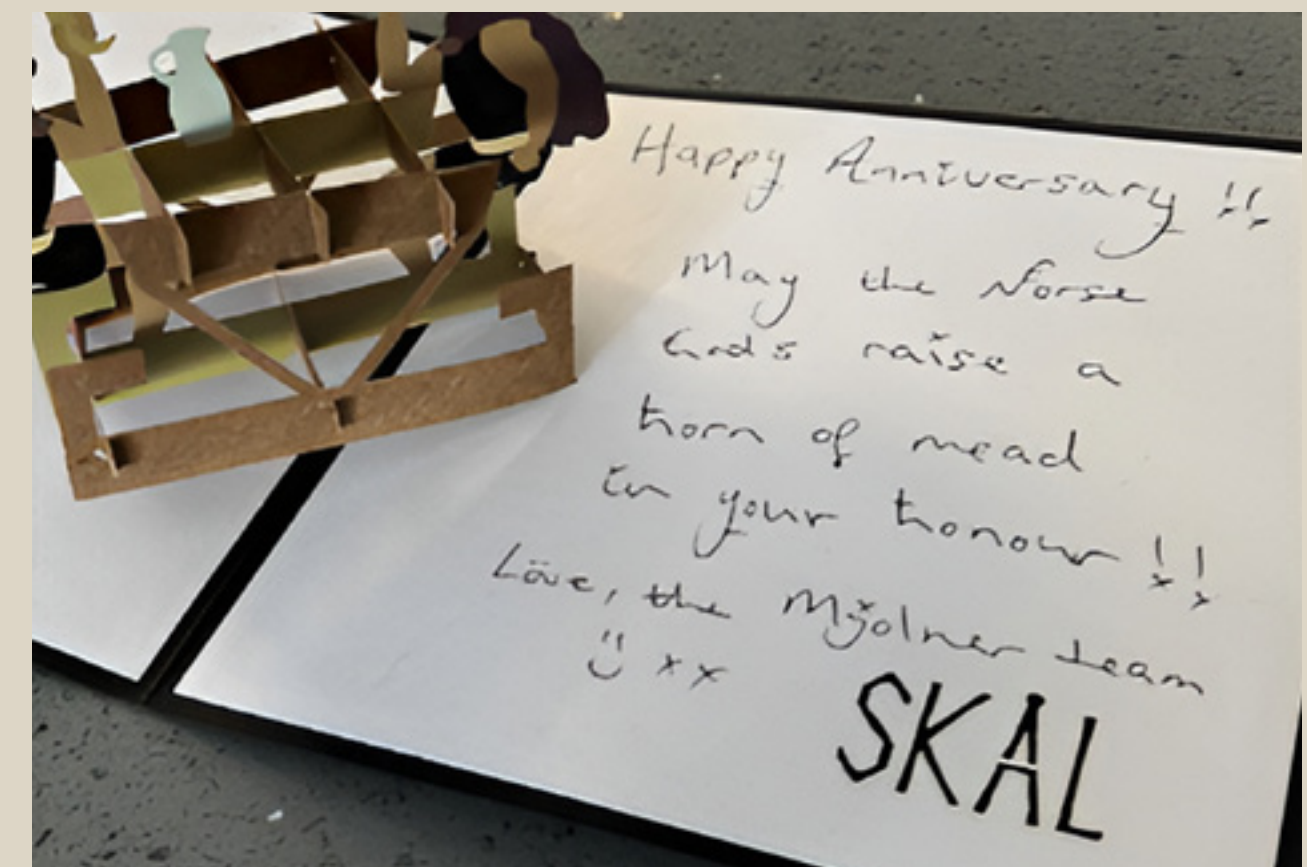 Happy Anniversary !!
May the Norse
Gods raise a
horn of mead
in your honour !!
Love, the Mjolner team
xx
SKAL